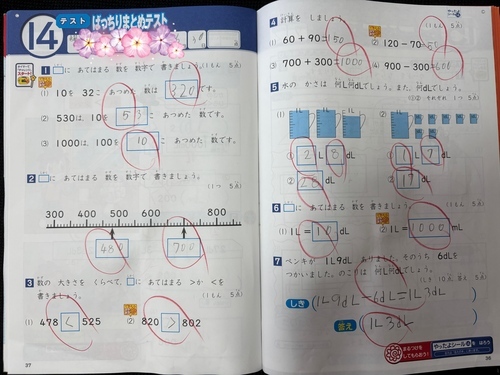 14
テスト
ばっちりまとめテスト
1 □に あてはまる 数を 数字で 書きましょう。
(1もん 5点)
(1) 10を 32こ あつめた 数は 320 です。
(2) 530は、10を 53こ あつめた 数です。
(3) 1000は、100を 10こ あつめた 数です。
2 □に あてはまる 数を 数字で 書きましょう。
(1つ 5点)
300 400 500 600 800
480 700
3 数の 大きさを くらべて、□に あてはまる >か <を
書きましょう。
(1もん 5点)
(1) 478 < 525
(2) 820 > 802
37
4 計算を しましょう。
(1もん 5点)
(1) 60+90=150
(2) 120-70=
(3) 700+300=1000
(4) 900-300=600
5 水の かさは 何L何dLでしょう。また、何dLでしょう。
(1) (2)
① 2L 8dL
② 28dL
① 1L 7dL
② 17dL
6 □に あてはまる 数を 書きましょう。
(1つ 5点)
(1) 1L=10dL
(2) 1L=1000mL
7 ペンキが 1L9dL ありました。そのうち 6dLを
つかいました。のこりは 何L何dLでしょう。
(しき 10点、答え 5点)
しき (1L9dL-6dL=1L3dL)
答え (1L3dL)
まるつけを
してもらおう!
やったよシール
を はろう
38